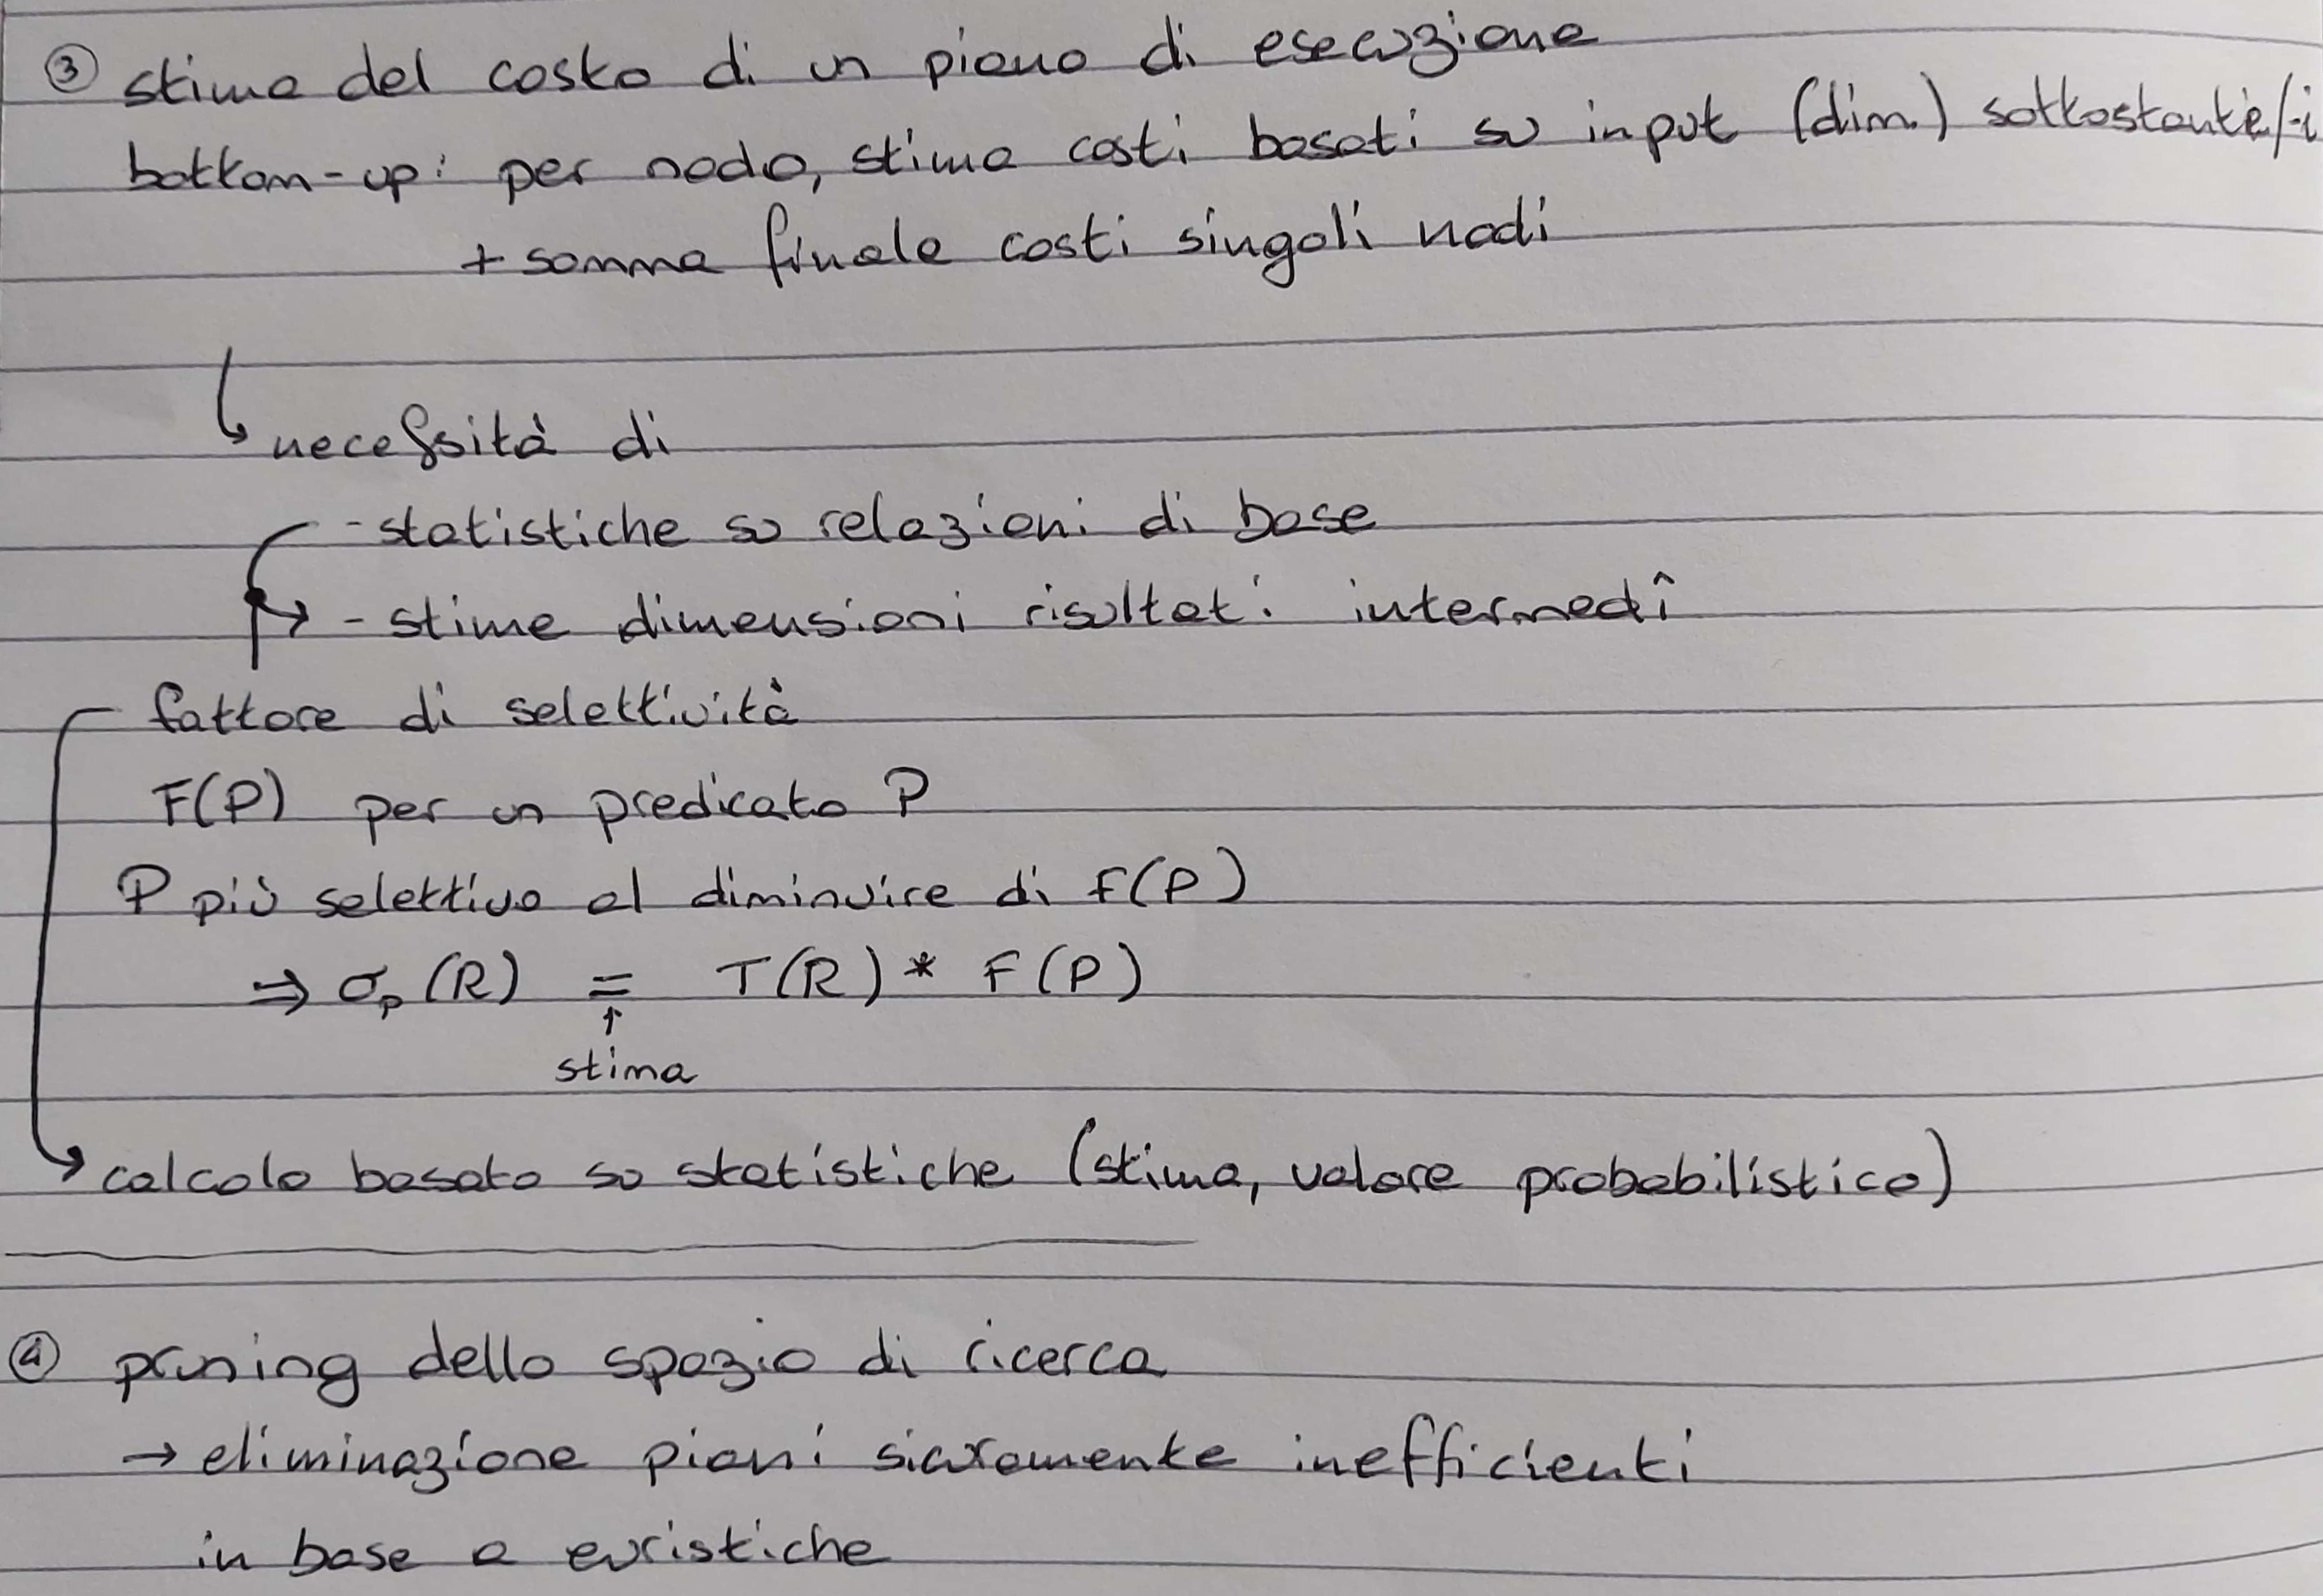 ③ stima del costo di un piano di esecuzione
bottom-up: per nodo, stima costi basati su input (dim.) sottostante/-i
+ somma finale costi singoli nodi
↳ necessità di
- statistiche su relazioni di base
- stime dimensioni risultati intermedî
fattore di selettività
F(P) per un predicato P
P più selettivo al diminuire di F(P)
⇒ σ_P (R) = T(R) * F(P)
↑
stima
→ calcolo basato su statistiche (stima, valore probabilistico)
④ pruning dello spazio di ricerca
→ eliminazione piani sicuramente inefficienti
in base a euristiche